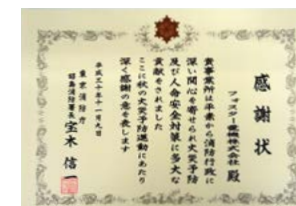 感謝状
フォスター電機株式会社 殿
貴事業所は平素から消防行政に
深い関心を寄せられ火災予防
及び人命安全対策に多大な
貢献をされました
ここに秋の火災予防運動にあたり
深く感謝の意を表します
平成三十年十一月九日
東京消防庁
昭島消防署長 宝木 信一